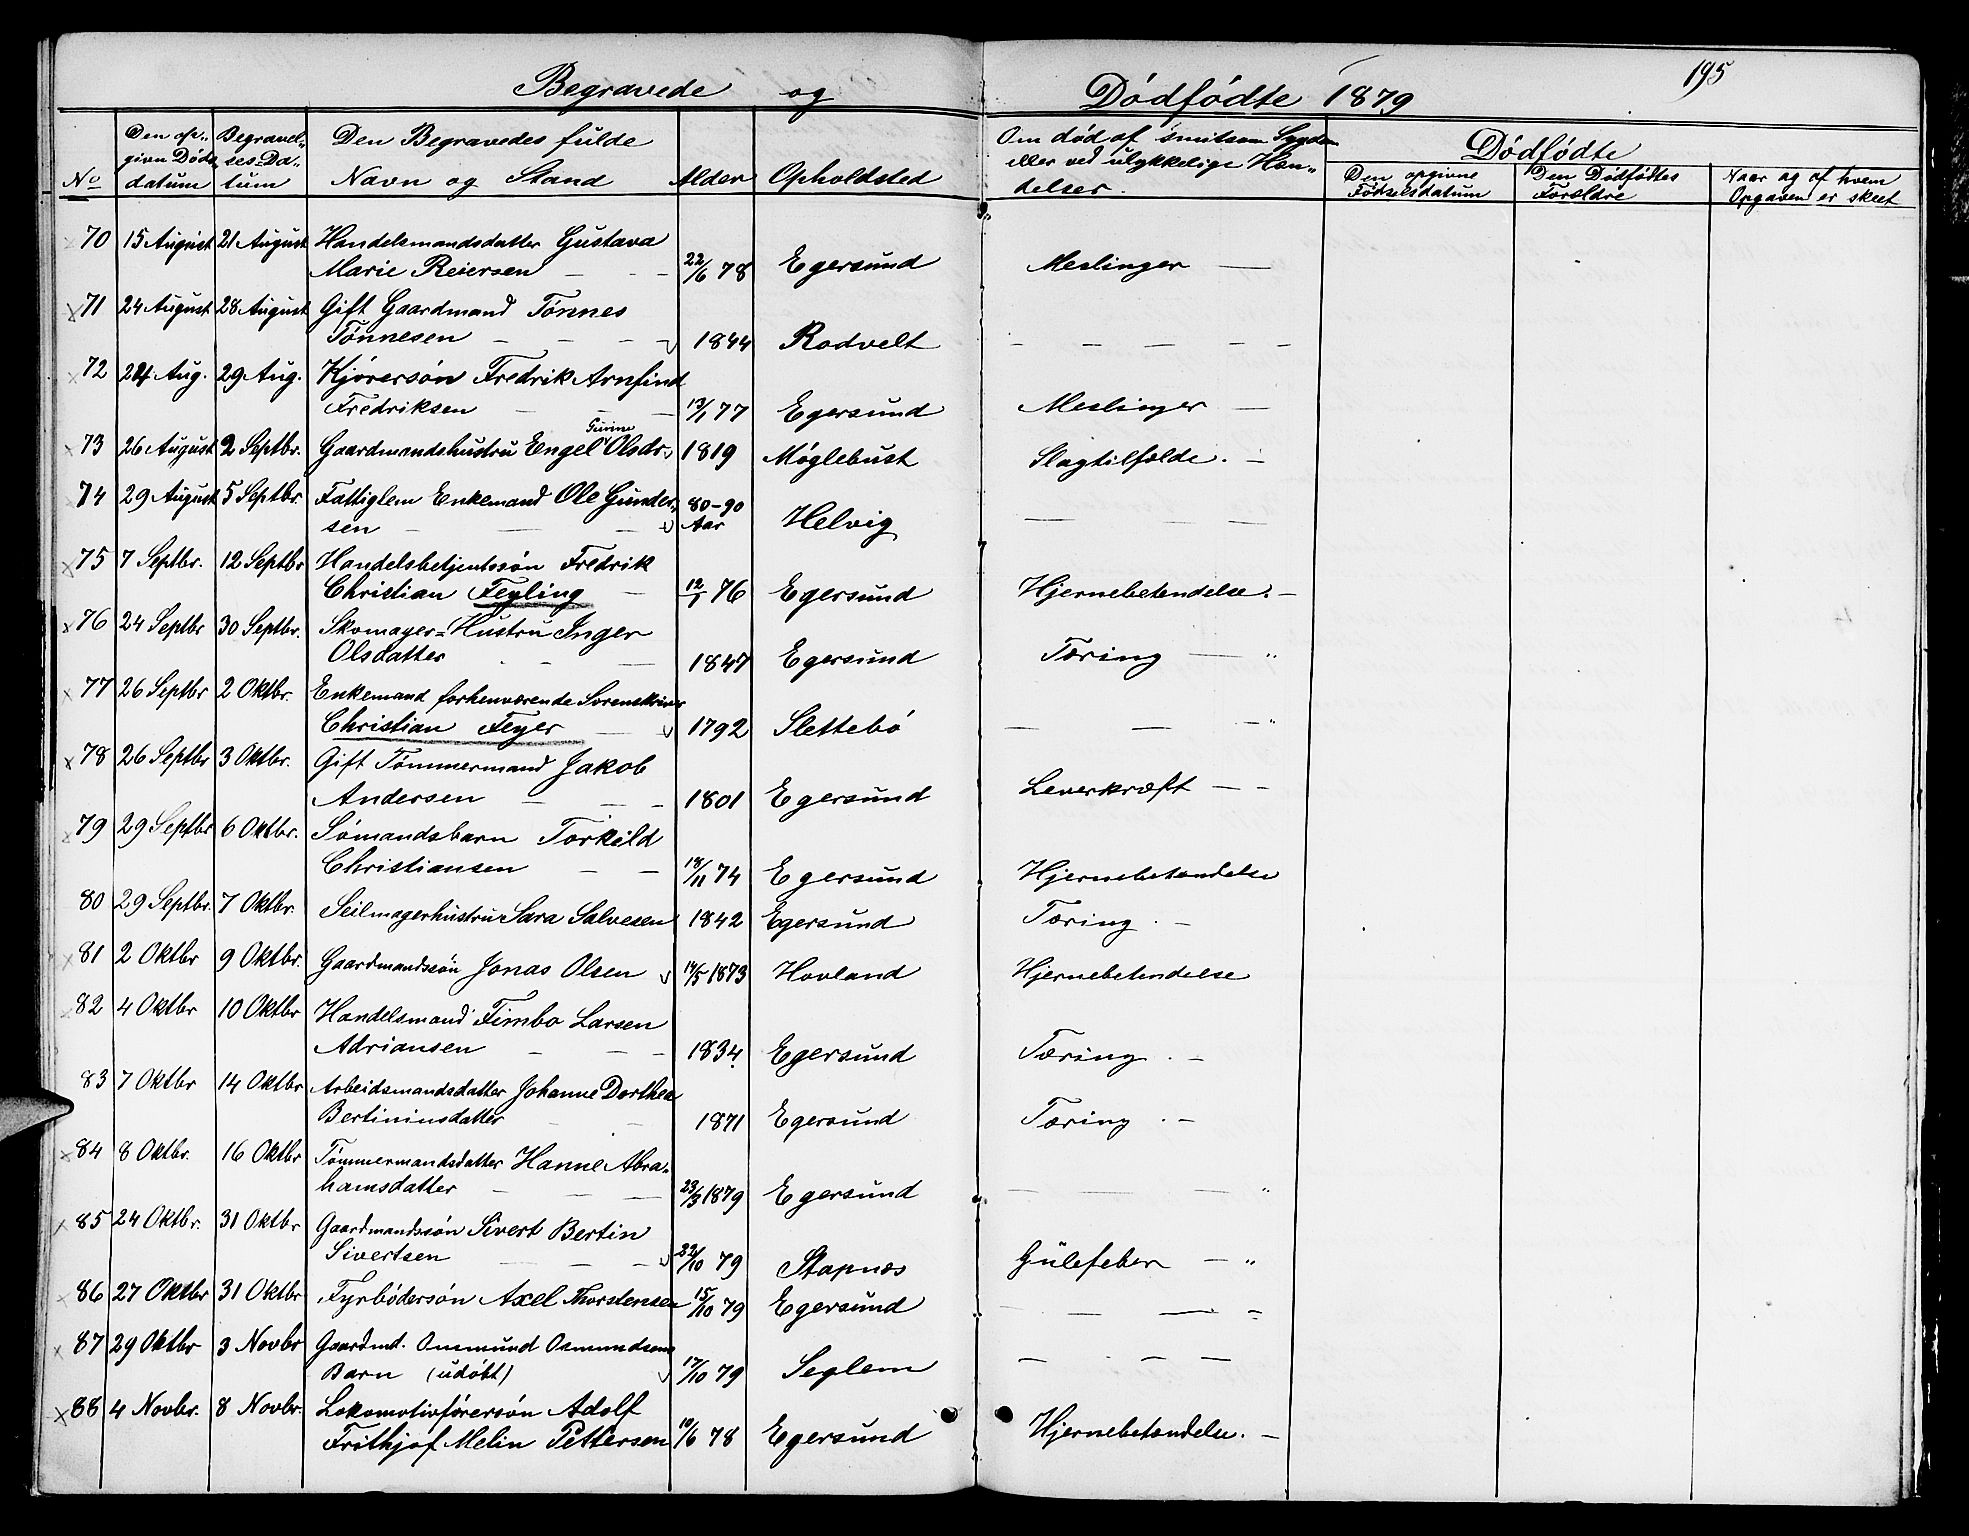 195
Begravede og Dödfödte 1879
No
Den op-
given Döds
datum
Begravel-
ses-Da-
tum
Den Begravedes fulde
Navn og Stand
Alder
Opholdsted
Om död af smitsom Sygdom
eller ved ulykkelige Hæn-
delser.
Dödfödte
Den opgivne
Födselsdatum
Den Dödfödtes
Forældre
Naar og af hvem
Opgaven er skeet
70 15 August 21 August Handelsmandsdatter Gustava
Marie Reiersen — 22/6 78 Egersund Meslinger —
71 24 August 28 August Gift Gaardmand Tönnes
Tönnesen — 1844 Rodvelt —
72 24 Aug. 29 Aug. Kjörersön Fredrik Arnfind
Fredriksen — 13/1 77 Egersund Meslinger —
Gurine
73 26 August 2 Septbr. Gaardmandshustru Engel Olsdr. 1819 Möglebust Slagtilfælde. —
74 29 August 5 Septbr. Fattiglem Enkemand Ole Gunder-
sen — 80-90 Aar Helvig —
75 7 Septbr. 12 Septbr Handelsbetjentssön Fredrik
Christian Feyling — 12/1 76 Egersund Hjernebetendelse. —
76 24 Septbr 30 Septbr. Skomager-Hustru Inger
Olsdatter — 1847 Egersund Tæring — "
77 26 Septbr 2 Oktbr. Enkemand forhenværende Sorenskriver
Christian Feyer — 1792 Slettebö — "
78 26 Septbr 3 Oktbr. Gift Tömmermand Jakob
Andersen — 1801 Egersund Leverkræft —
79 29 Septbr 6 Oktbr. Sömandsbarn Torkild
Christiansen — 18/11 74 Egersund Hjernebetændelse
80 29 Septbr. 7 Oktbr. Seilmagerhustru Sara Salvesen 1842 Egersund Tæring. —
81 2 Oktbr 9 Oktbr. Gaardmandssön Jonas Olsen 14/5 1873 Hovland Hjernebetendelse
82 4 Oktbr 10 Oktbr Handelsmand Fimbo Larsen
Adriansen — 1834. Egersund Tæring. —
83 7 Oktbr 14 Oktbr Arbeidsmandsdatter Johanne Dorthea
Bertininsdatter — 1871 Egersund Tæring. —
84 8 Oktbr. 16 Oktbr Tömmermandsdatter Hanne Abra-
hamsdatter — 23/3 1879 Egersund — "
85 24 Oktbr. 31 Oktbr Gaardmandssön Sivert Bertin
Sivertsen — 22/10 79 Stapnæs Gülefeber — "
86 27 Oktbr 31 Oktbr Fyrbödersön Axel Thorstensen 15/10 79 Egersund —
87 29 Oktbr 3 Novbr Gaardmd. Osmund Osmundsens
Barn (udöbt) 17/10 79 Seglem —
88 4 Novbr. 8 Novbr. Lokomotivförersön Adolf
Frithjof Melin Pettersen 10/6 78 Egersund Hjernebetændelse. —